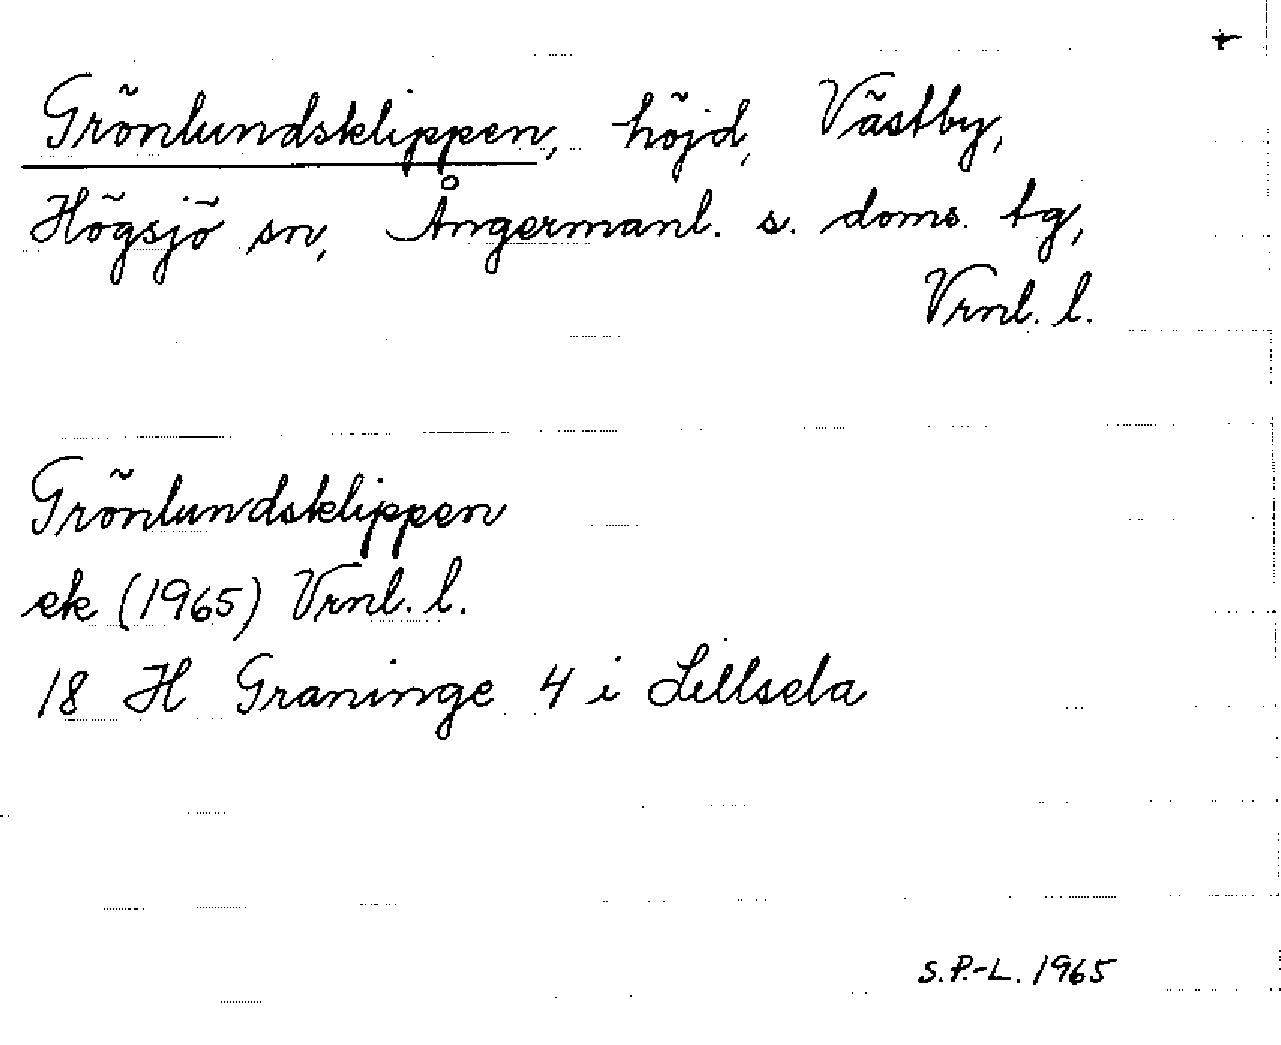 +
Grönlundsklippen, höjd, Västby,
Högsjö sn, Ångermanl. s. doms. tg,
Vrnl. l.
Grönlundsklippen
ek (1965) Vrnl. l.
18 H Graninge 4 i Lillsela
S.P.-L. 1965